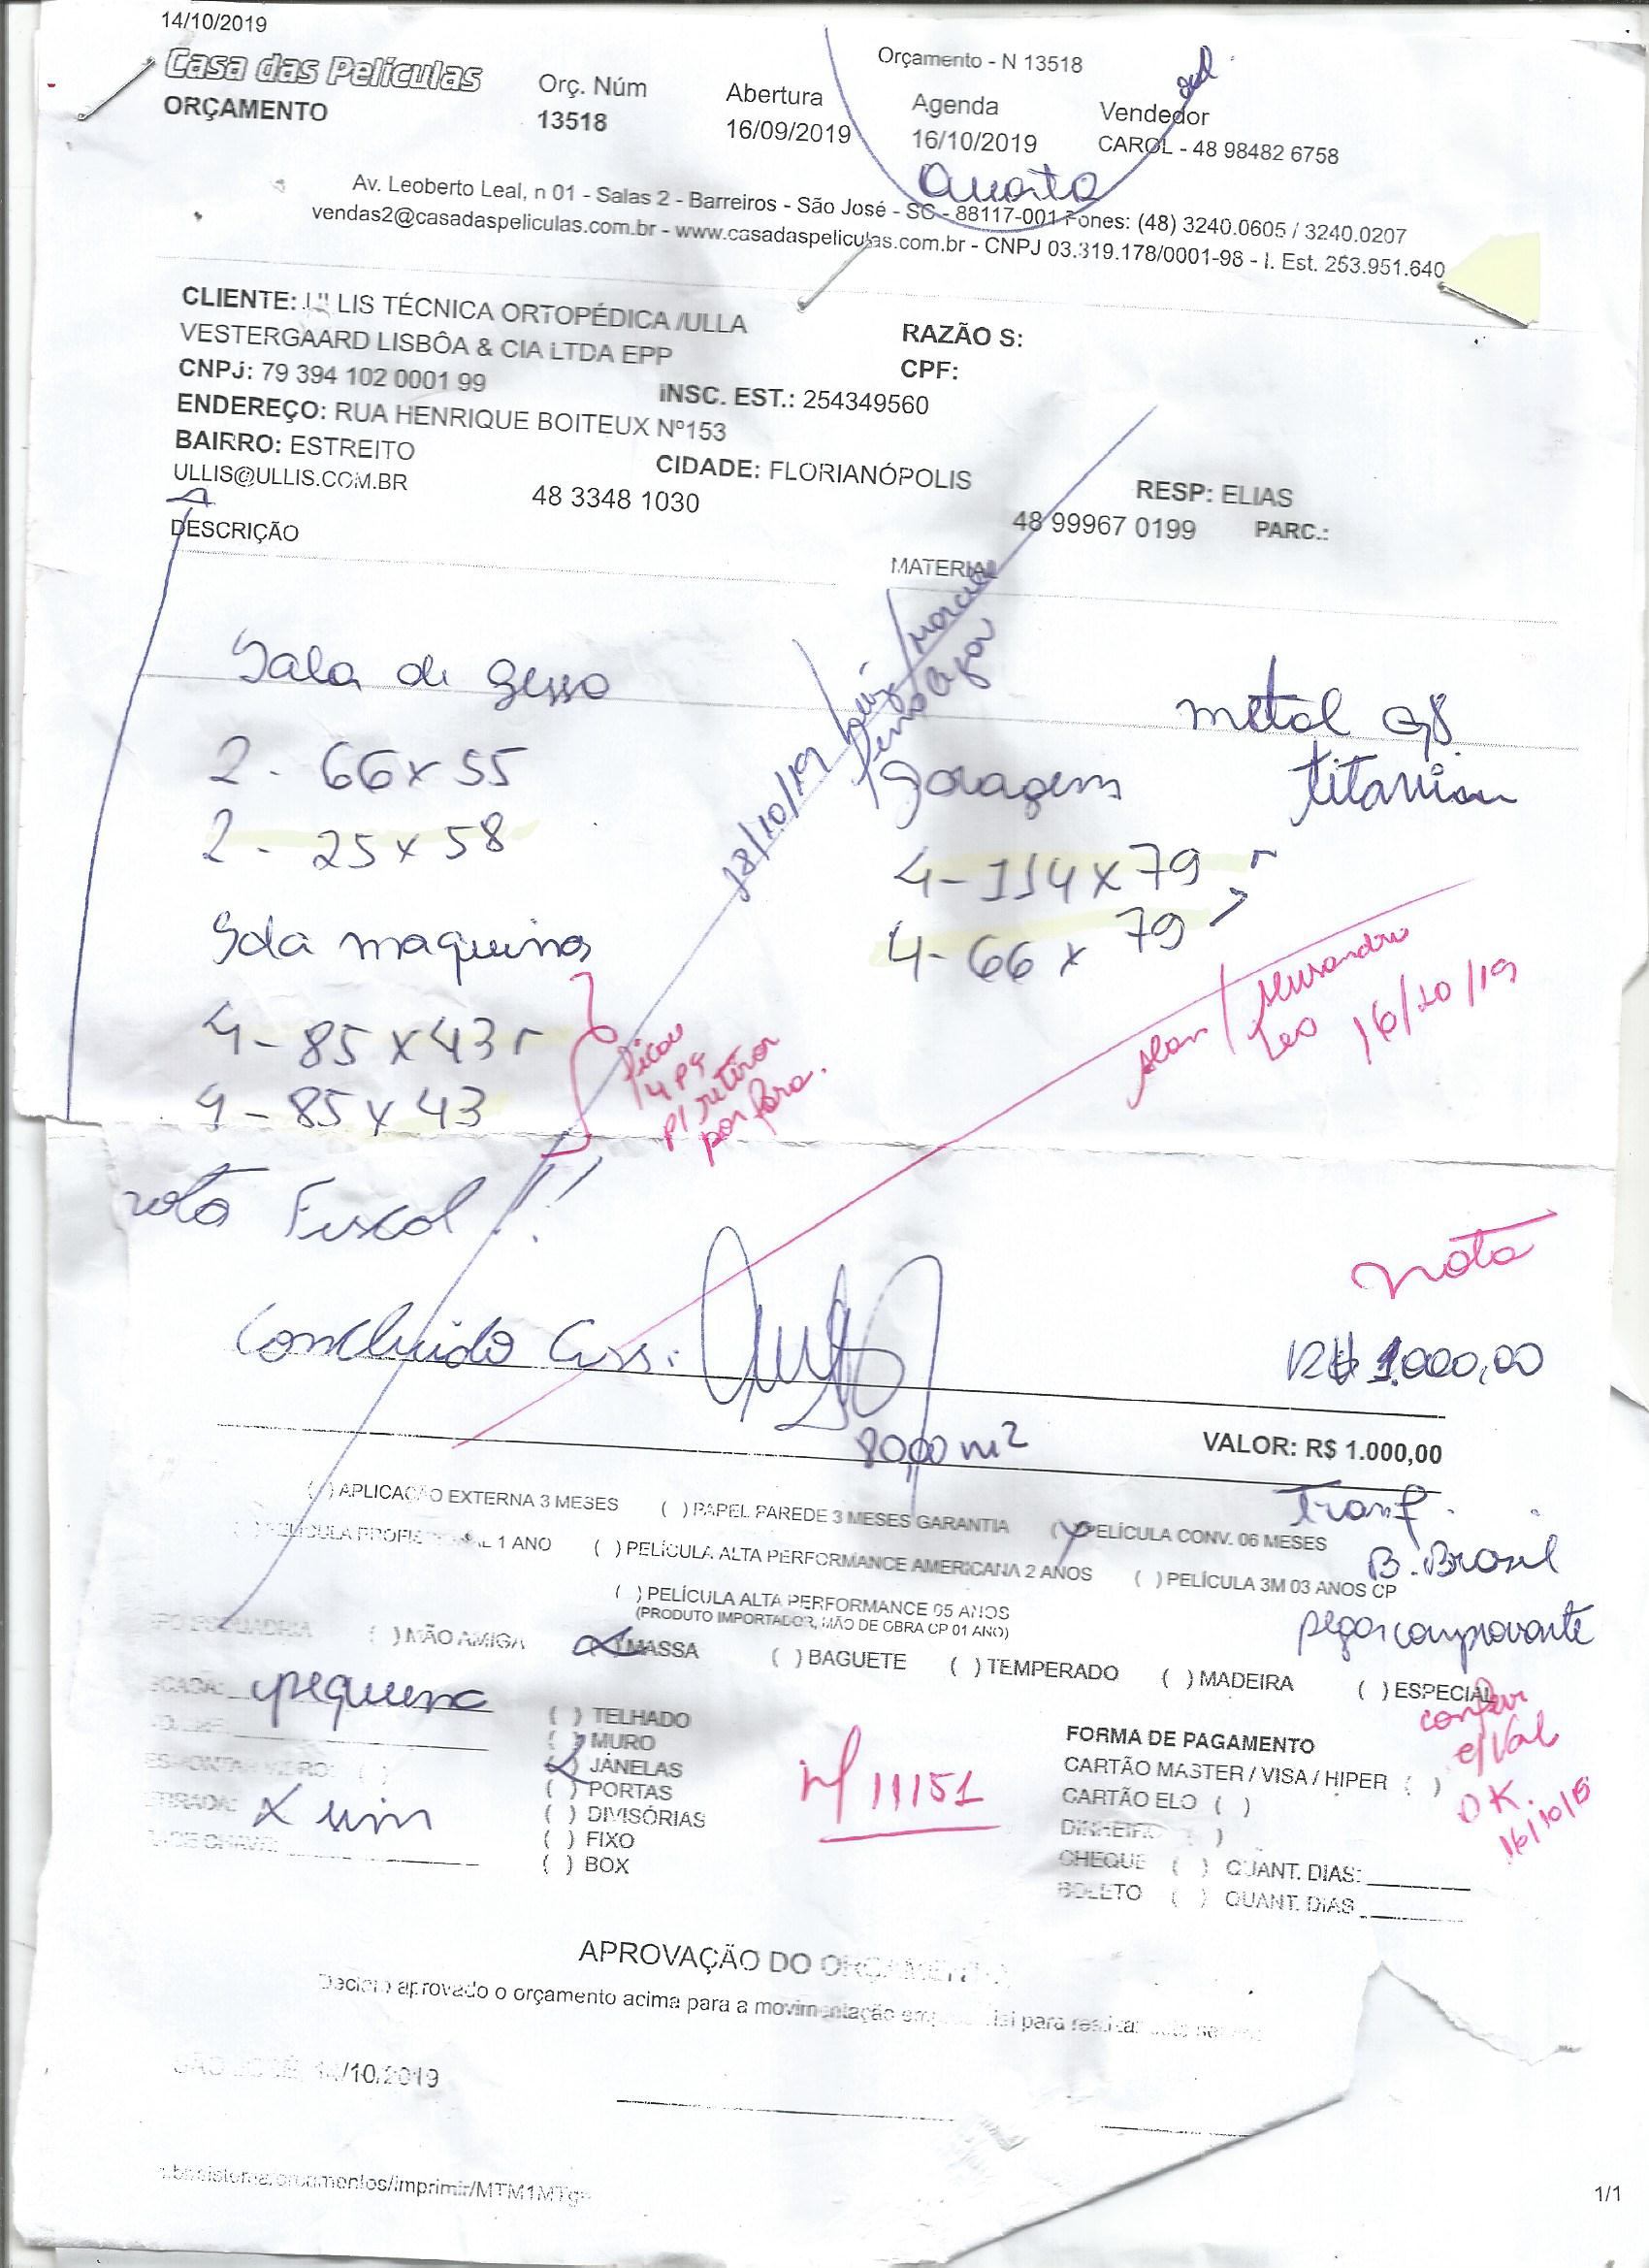 14/10/2019
Orçamento - N 13518
Casa das Películas
ORÇAMENTO
Orç. Núm
13518
Abertura
16/09/2019
Agenda
16/10/2019
Vendedor
CAROL - 48 98482 6758
Quarta
Av. Leoberto Leal, n 01 - Salas 2 - Barreiros - São José - SC - 88117-001 Fones: (48) 3240.0605 / 3240.0207
vendas2@casadaspeliculas.com.br - www.casadaspeliculas.com.br - CNPJ 03.319.178/0001-98 - I. Est. 253.951.640
CLIENTE: ULLIS TÉCNICA ORTOPÉDICA /ULLA
VESTERGAARD LISBÔA & CIA LTDA EPP
RAZÃO S:
CNPJ: 79 394 102 0001 99
INSC. EST.: 254349560
CPF:
ENDEREÇO: RUA HENRIQUE BOITEUX Nº153
BAIRRO: ESTREITO
CIDADE: FLORIANÓPOLIS
RESP: ELIAS
ULLIS@ULLIS.COM.BR
48 3348 1030
48 99967 0199
PARC.:
DESCRIÇÃO
MATERIAL
Sala de gesso
2 - 66 x 55
2 - 25 x 58
Sala maquinas
4 - 85 x 43
4 - 85 x 43
garagem
4 - 114 x 79
4 - 66 x 79
metal G8
titanium
ficou
4 Pç
p/ retirar
por fora.
16/10/19
nota Fiscal!!
nota
Concluido Ass:
R$ 1.000,00
80,00 m²
VALOR: R$ 1.000,00
( ) APLICAÇÃO EXTERNA 3 MESES
( ) PAPEL PAREDE 3 MESES GARANTIA
(x) PELÍCULA CONV. 06 MESES
Tranf.
1 ANO
( ) PELÍCULA ALTA PERFORMANCE AMERICANA 2 ANOS
( ) PELÍCULA 3M 03 ANOS CP
B. Brasil
( ) PELÍCULA ALTA PERFORMANCE 05 ANOS
(PRODUTO IMPORTADOR, MÃO DE OBRA CP 01 ANO)
pegar comprovante
( ) MÃO AMIGA
(x) MASSA
( ) BAGUETE
( ) TEMPERADO
( ) MADEIRA
( ) ESPECIAL
pequena
( ) TELHADO
( ) MURO
(x) JANELAS
( ) PORTAS
( ) DIVISÓRIAS
( ) FIXO
( ) BOX
x sim
nf 11151
FORMA DE PAGAMENTO
CARTÃO MASTER / VISA / HIPER ( )
CARTÃO ELO ( )
DINHEIRO ( )
CHEQUE ( ) QUANT. DIAS:
BOLETO ( ) QUANT. DIAS
c/ Val
OK.
APROVAÇÃO DO ORÇAMENTO
Declaro aprovado o orçamento acima para a movimentação
14/10/2019
1/1